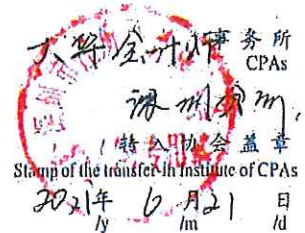 大华会计师事务所
CPAs
转入协会盖章
Stamp of the transfer-in Institute of CPAs
2021年 6月21日
/y /m /d